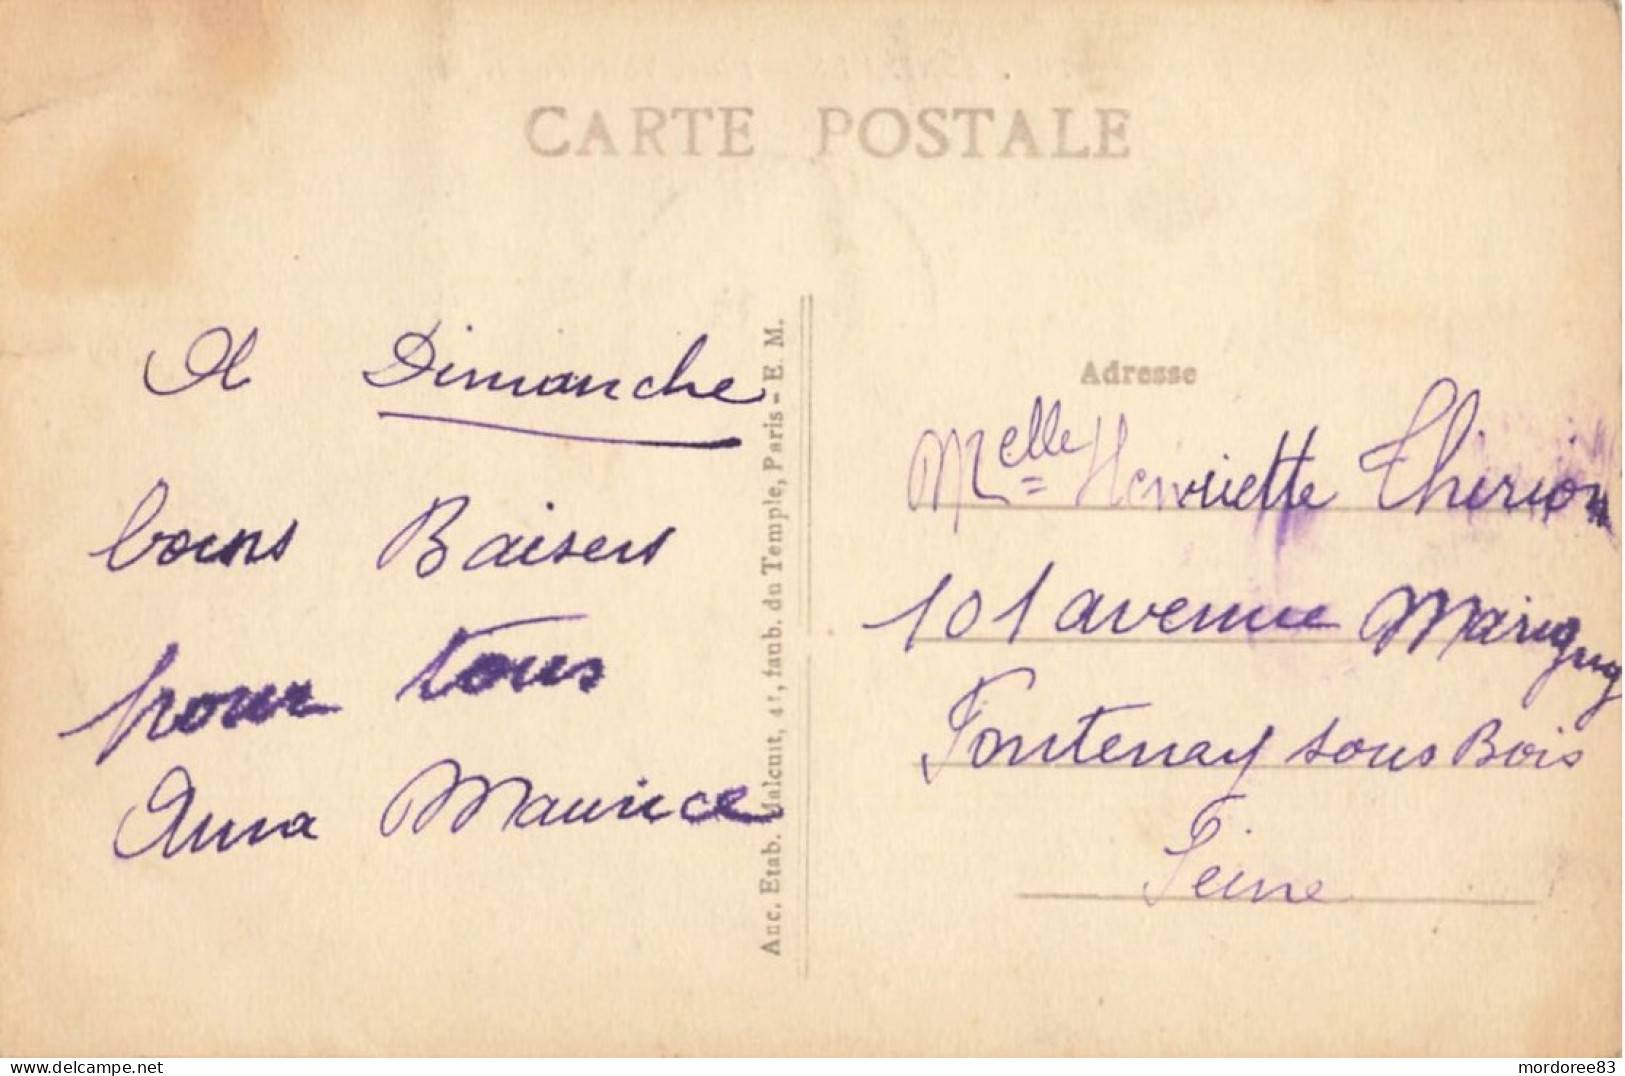 CARTE POSTALE
A Dimanche
bons Baisers
pour tous
Anna Maurice
Anc. Etab. Malcuit, 41, faub. du Temple, Paris - E. M.
Adresse
Melle Henriette Thirion
101 avenue Marigny
Fontenay sous Bois
Seine
delcampe.net
mordoree83